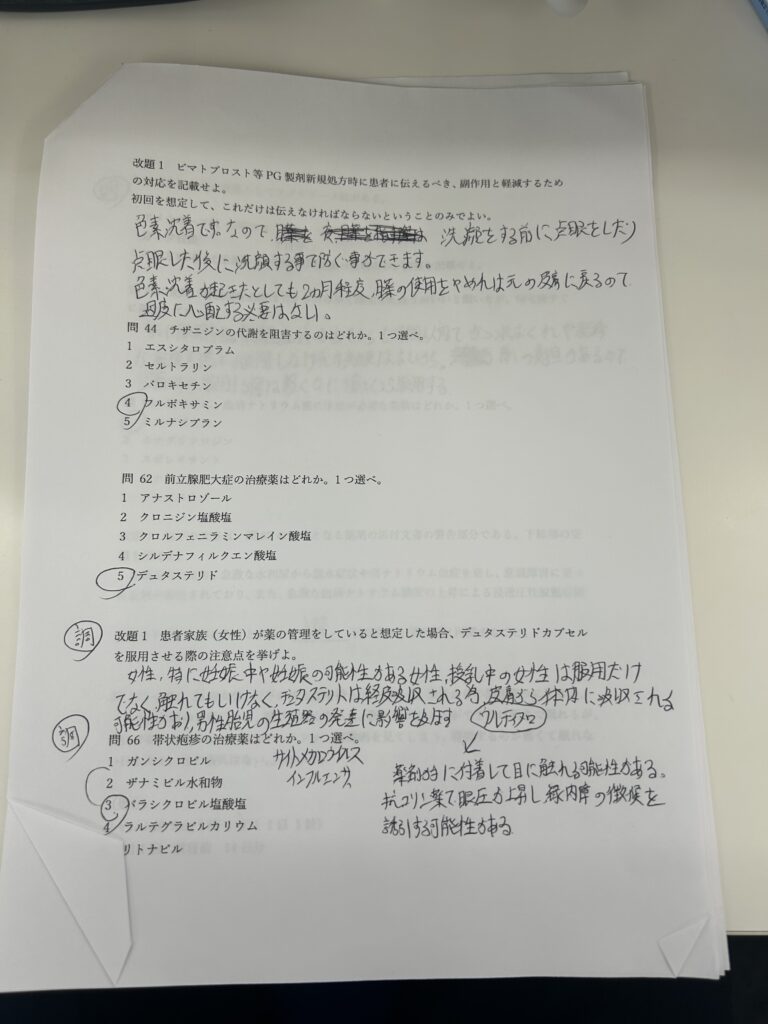 改題1 ビマトプロスト等PG製剤新規処方時に患者に伝えるべき、副作用と軽減するため
の対応を記載せよ。
初回を想定して、これだけは伝えなければならないということのみでよい。
色素沈着です。なので 洗顔をする前に点眼をしたり
点眼した後に洗顔する事で防ぐ事ができます。
色素沈着が起きたとしても2ヵ月程度、薬の使用をやめれば元の皮膚に戻るので
過度に心配する必要はない。
問 44 チザニジンの代謝を阻害するのはどれか。1つ選べ。
1 エスシタロプラム
2 セルトラリン
3 パロキセチン
4 フルボキサミン
5 ミルナシプラン
問 62 前立腺肥大症の治療薬はどれか。1つ選べ。
1 アナストロゾール
2 クロニジン塩酸塩
3 クロルフェニラミンマレイン酸塩
4 シルデナフィルクエン酸塩
5 デュタステリド
調
改題1 患者家族（女性）が薬の管理をしていると想定した場合、デュタステリドカプセル
を服用させる際の注意点を挙げよ。
女性、特に妊娠中や妊娠の可能性がある女性、授乳中の女性は服用だけ
でなく、触れてもいけなく、デュタステリドは経皮吸収される為、皮膚から体内に吸収される
可能性があり、男性胎児の生殖器の発達に影響を及ぼす
問 66 帯状疱疹の治療薬はどれか。1つ選べ。
1 ガンシクロビル サイトメガロウイルス
2 ザナミビル水和物 インフルエンザ
3 バラシクロビル塩酸塩
4 ラルテグラビルカリウム
リトナビル
ウルティブロ
薬剤が手に付着して目に触れる可能性がある。
抗コリン薬で眼圧が上昇し緑内障の徴候を
誘引する可能性がある